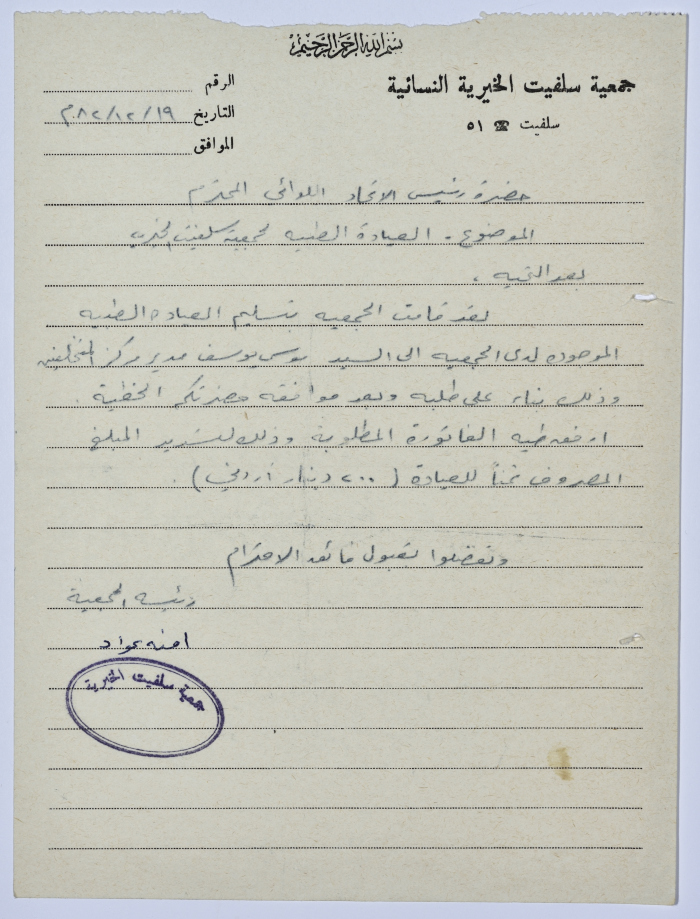 بسم الله الرحمن الرحيم
جمعية سلفيت الخيرية النسائية
سلفيت ☎ ٥١
الرقم
التاريخ ١٩/١٢/٨٢م
الموافق
حضرة رئيس الاتحاد اللوائي المحترم
الموضوع - العيادة الطبيه لجمعية سلفيت الخيرية
بعد التحيه ،
لقد قامت الجمعيه بتسليم العيادة الطبيه
الموجوده لدى الجمعيه الى السيد موسى يوسف مدير مركز المتخلفين
وذلك بناء على طلبه وبعد موافقة حضرتكم الخطية .
ارفع طيه الفاتورة المطلوبة وذلك لتسديد المبلغ
المصروف ثمناً للعيادة ( ٢٠٠ دينار أردني ) .
وتفضلوا بقبول فائق الاحترام
رئيسة الجمعية
امنه عواد
جمعية سلفيت الخيرية